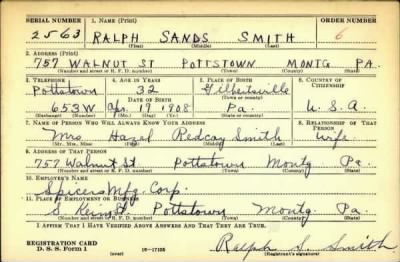 SERIAL NUMBER 1. NAME (Print) ORDER NUMBER
2563 RALPH SANDS SMITH 6
(First) (Middle) (Last)
2. ADDRESS (Print)
757 WALNUT ST POTTSTOWN MONTG PA.
(Number and street or R. F. D. number) (Town) (County) (State)
3. TELEPHONE 4. AGE IN YEARS 5. PLACE OF BIRTH 6. COUNTRY OF CITIZENSHIP
Pottstown 32 Gilbertsville
DATE OF BIRTH (Town or county)
653W Apr. 19 1908 Pa. U.S.A.
(Exchange) (Number) (Mo.) (Day) (Yr.) (State or country)
7. NAME OF PERSON WHO WILL ALWAYS KNOW YOUR ADDRESS 8. RELATIONSHIP OF THAT PERSON
Mrs Hazel Redcay Smith Wife
(Mr., Mrs., Miss) (First) (Middle) (Last)
9. ADDRESS OF THAT PERSON
757 Walnut St Pottstown Montg Pa.
(Number and street or R. F. D. number) (Town) (County) (State)
10. EMPLOYER'S NAME
Spicers Mfg. Corp.
11. PLACE OF EMPLOYMENT OR BUSINESS
S Keim St Pottstown Montg Pa.
(Number and street or R. F. D. number) (Town) (County) (State)
I AFFIRM THAT I HAVE VERIFIED ABOVE ANSWERS AND THAT THEY ARE TRUE.
REGISTRATION CARD
D. S. S. Form 1 (over) 16-17105 Ralph S. Smith
(Registrant's signature)